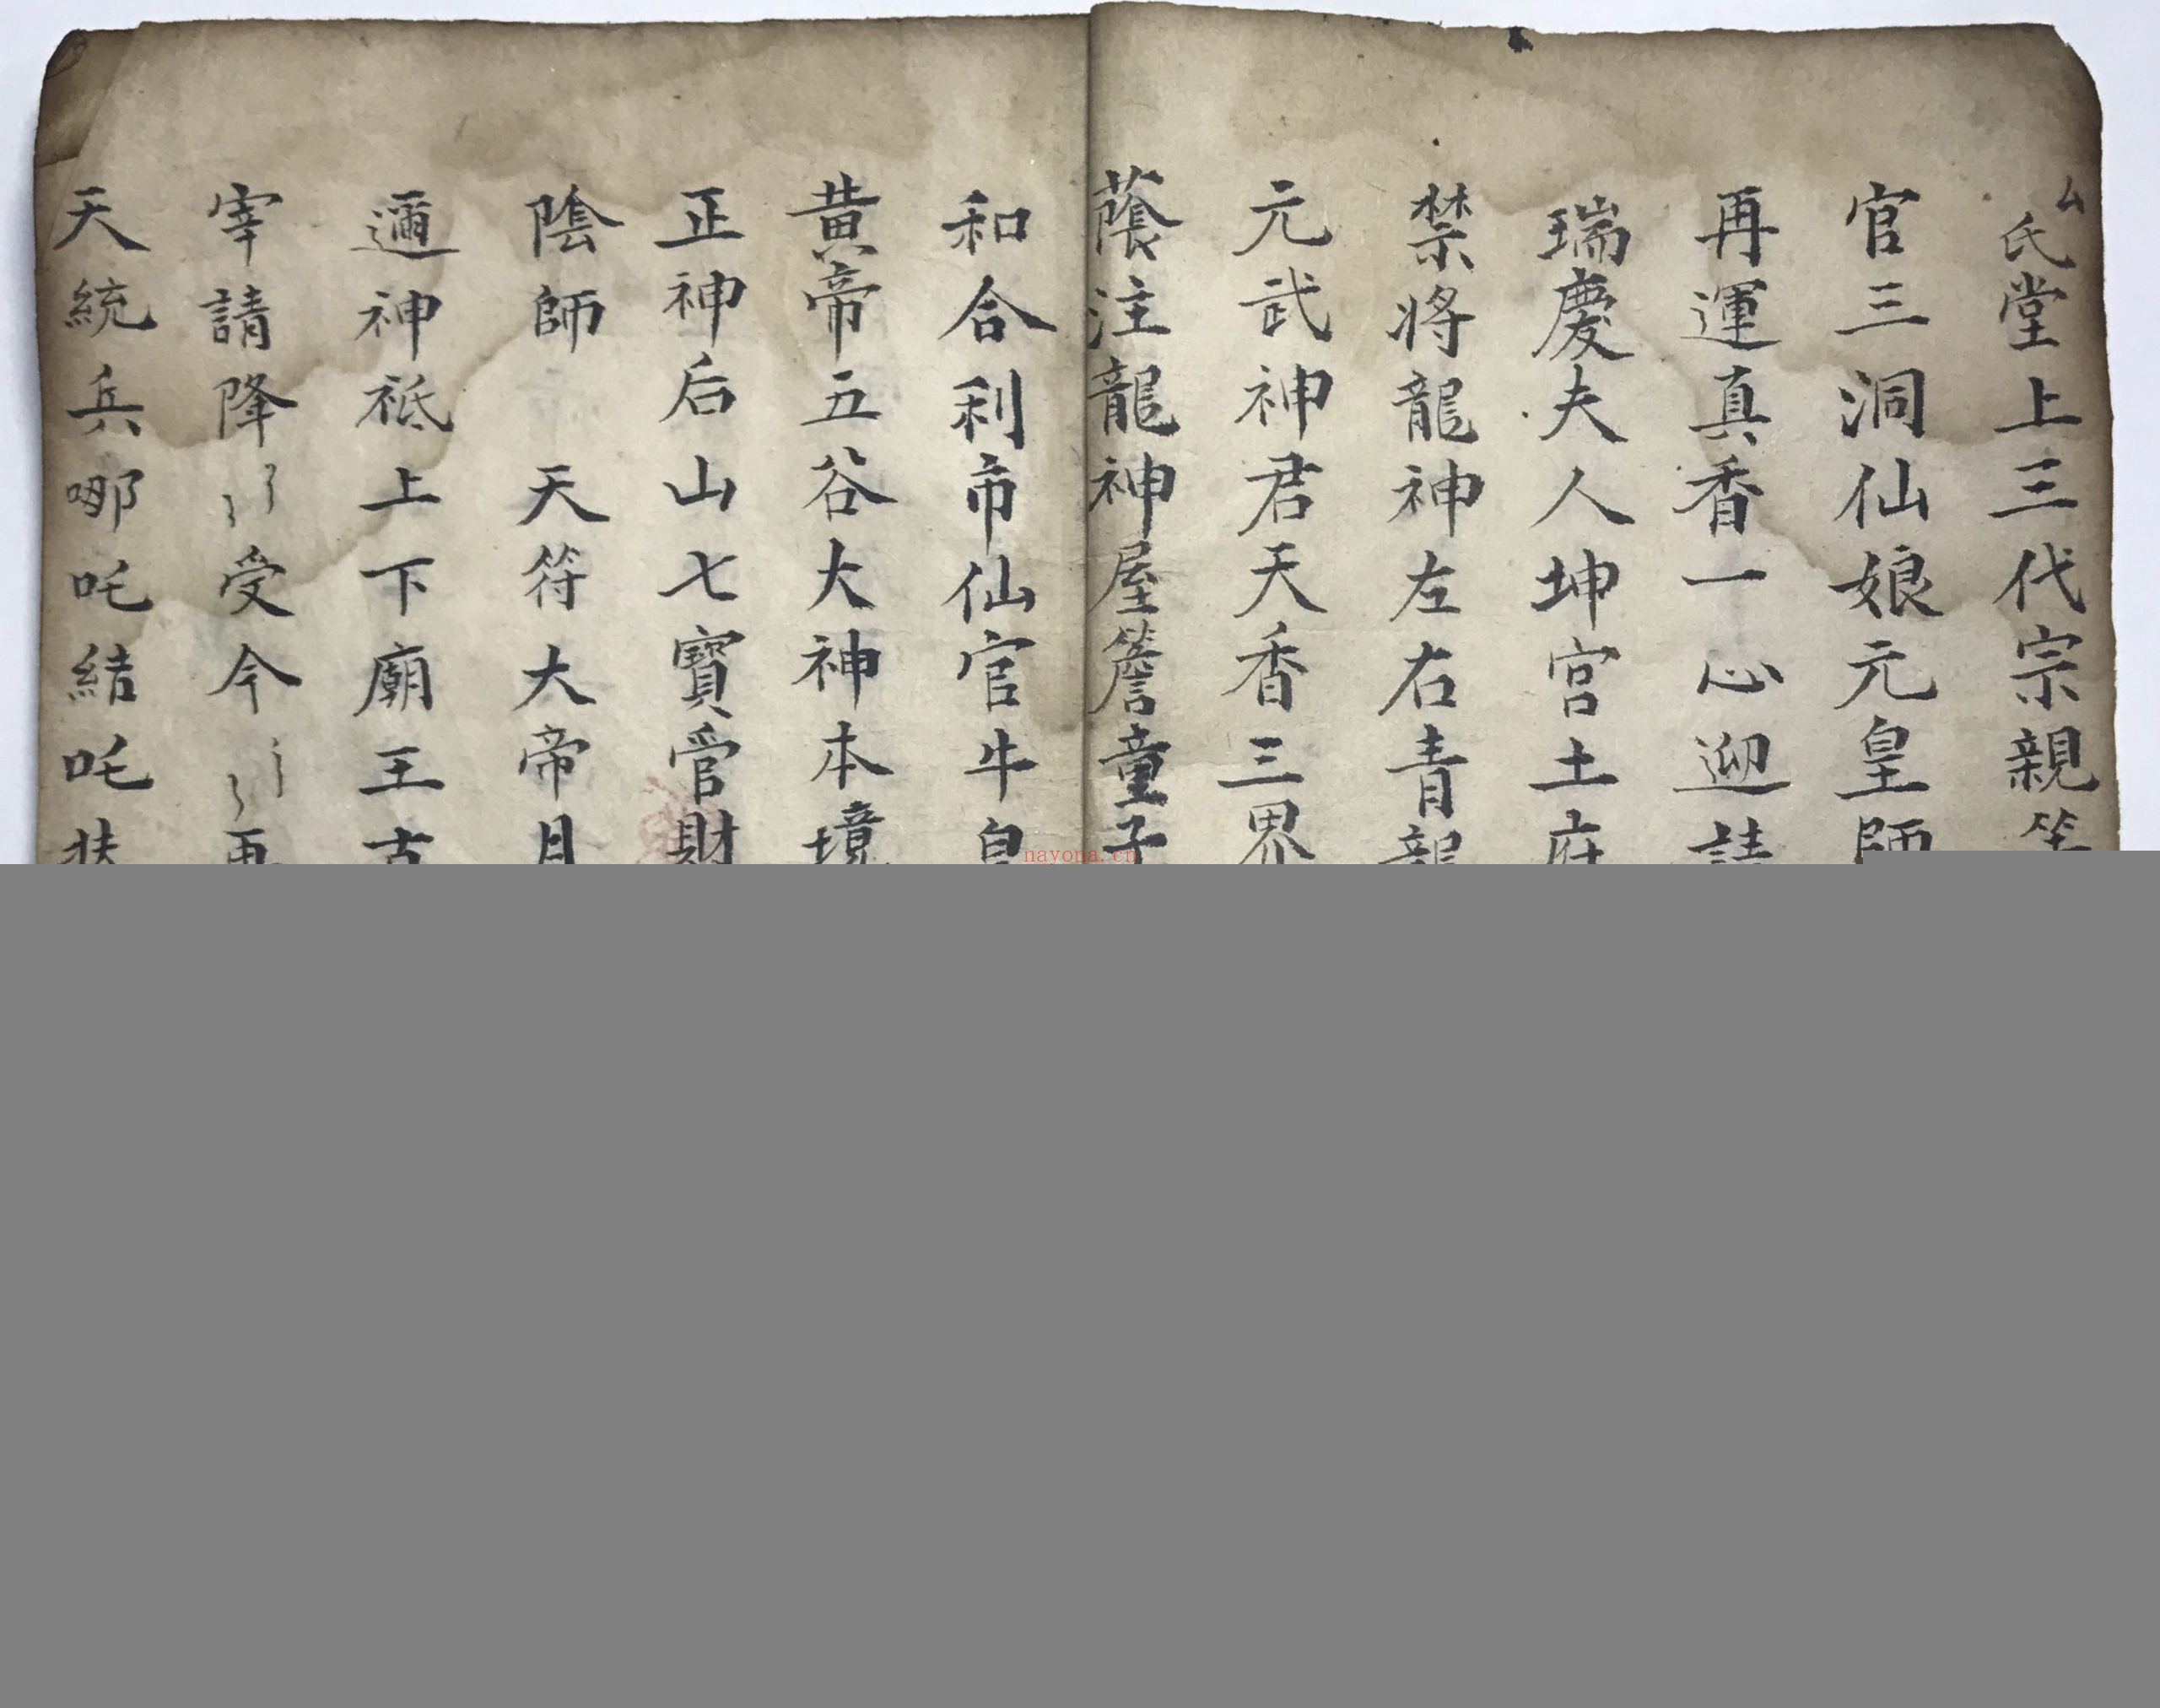 厶氏堂上三代宗親等
官三洞仙娘元皇師
再運真香一心迎請
瑞慶夫人坤宮土府
禁將龍神左右青龍
元武神君天香三界
蔭注龍神屋簷童子
和合利市仙官牛皇
黄帝五谷大神本境
正神后山七寳管財
陰師 天符大帝月
邇神祗上下廟王古
宰請降〻受今〻再
天統兵哪吒結吒扶
nayona.cn